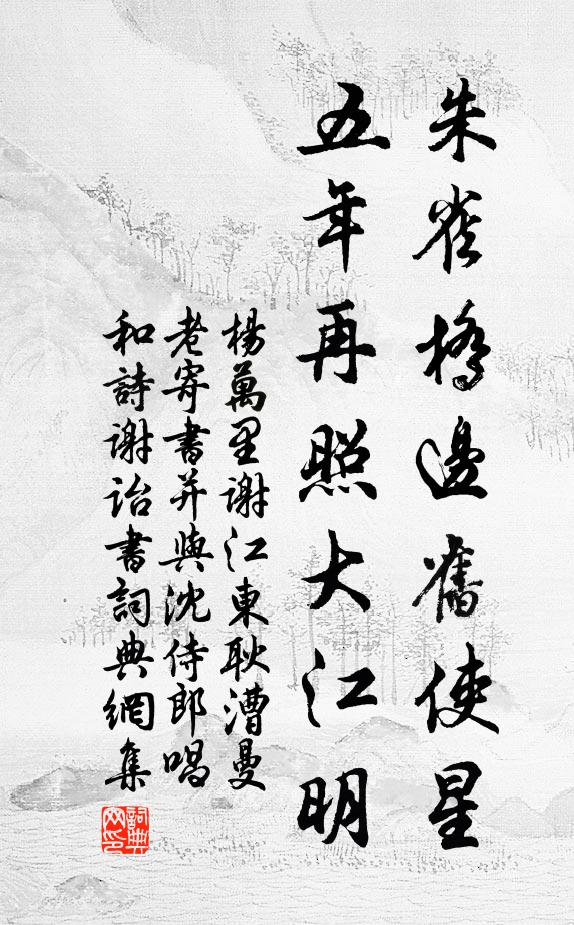 朱雀橋邊舊使星
五年再照大江明
楊萬里謝江東耿漕曼
老寄書并與沈侍郎唱
和詩謝詒書詞典網集
詞典
网印